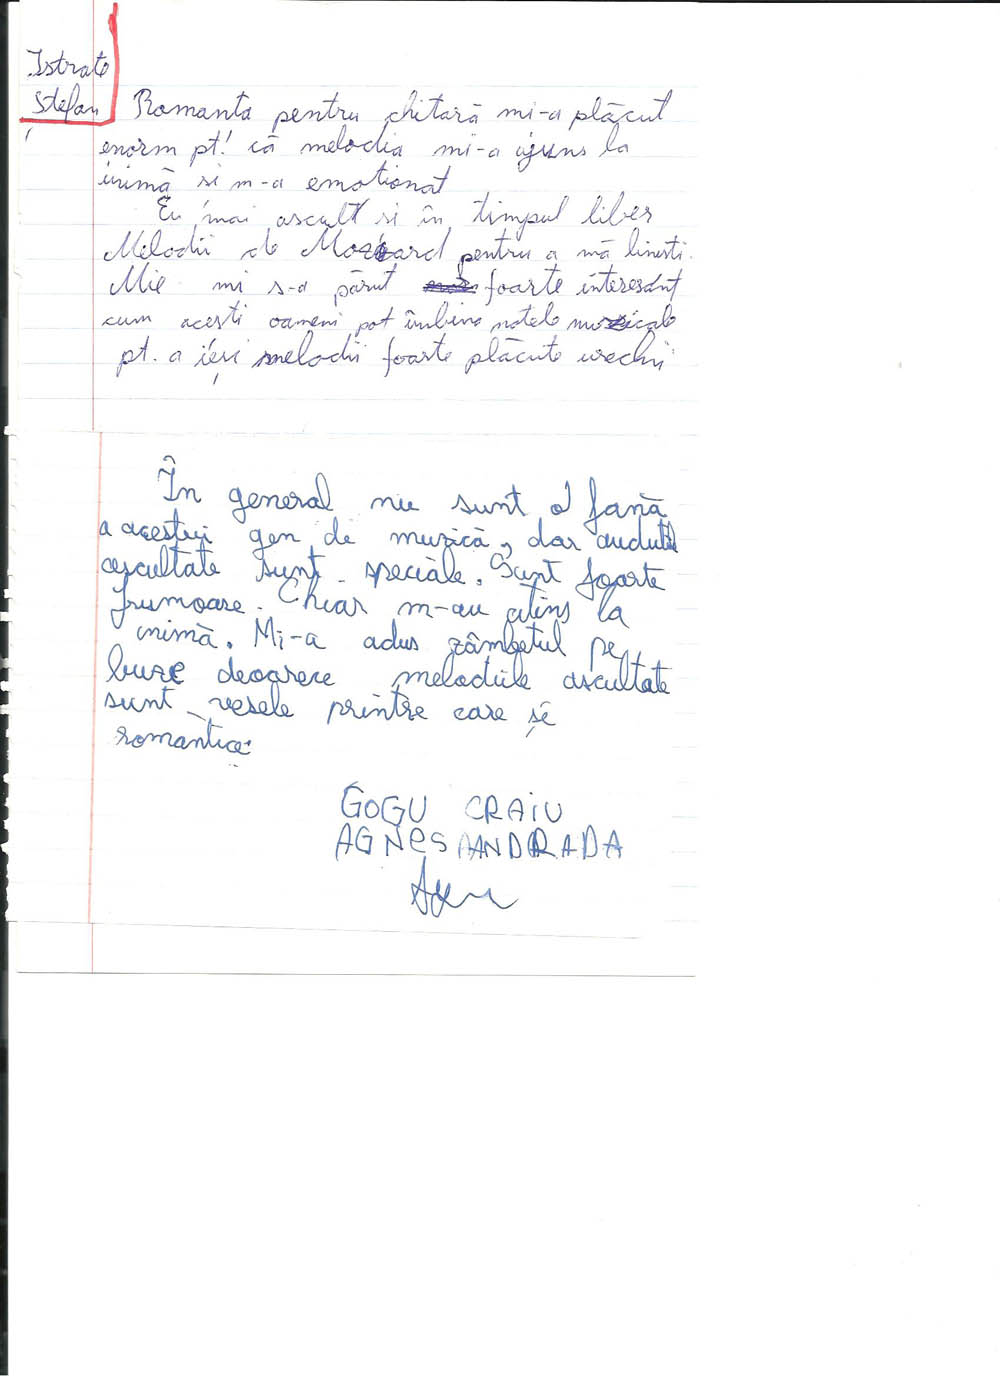 Istrate
Stefan
Romanta pentru chitară mi-a plăcut
enorm pt. că melodia mi-a ajuns la
inimă si m-a emotionat
Eu mai ascult si în timpul liber
Melodii de pentru a mă linisti.
Mie mi s-a părut foarte interesant
cum acesti oameni pot îmbina notele muzicale
pt. a iesi melodii foarte plăcute urechii
În general nu sunt o fană
a acestui gen de muzică, dar
ascultate sunt speciale. Sunt foarte
frumoare. Chiar m-au atins la
inimă. Mi-a adus zâmbetul pe
buze deoarece melodiile ascultate
sunt vesele printre care și
romantice.
GOGU CRAIU
AGNES ANDRADA